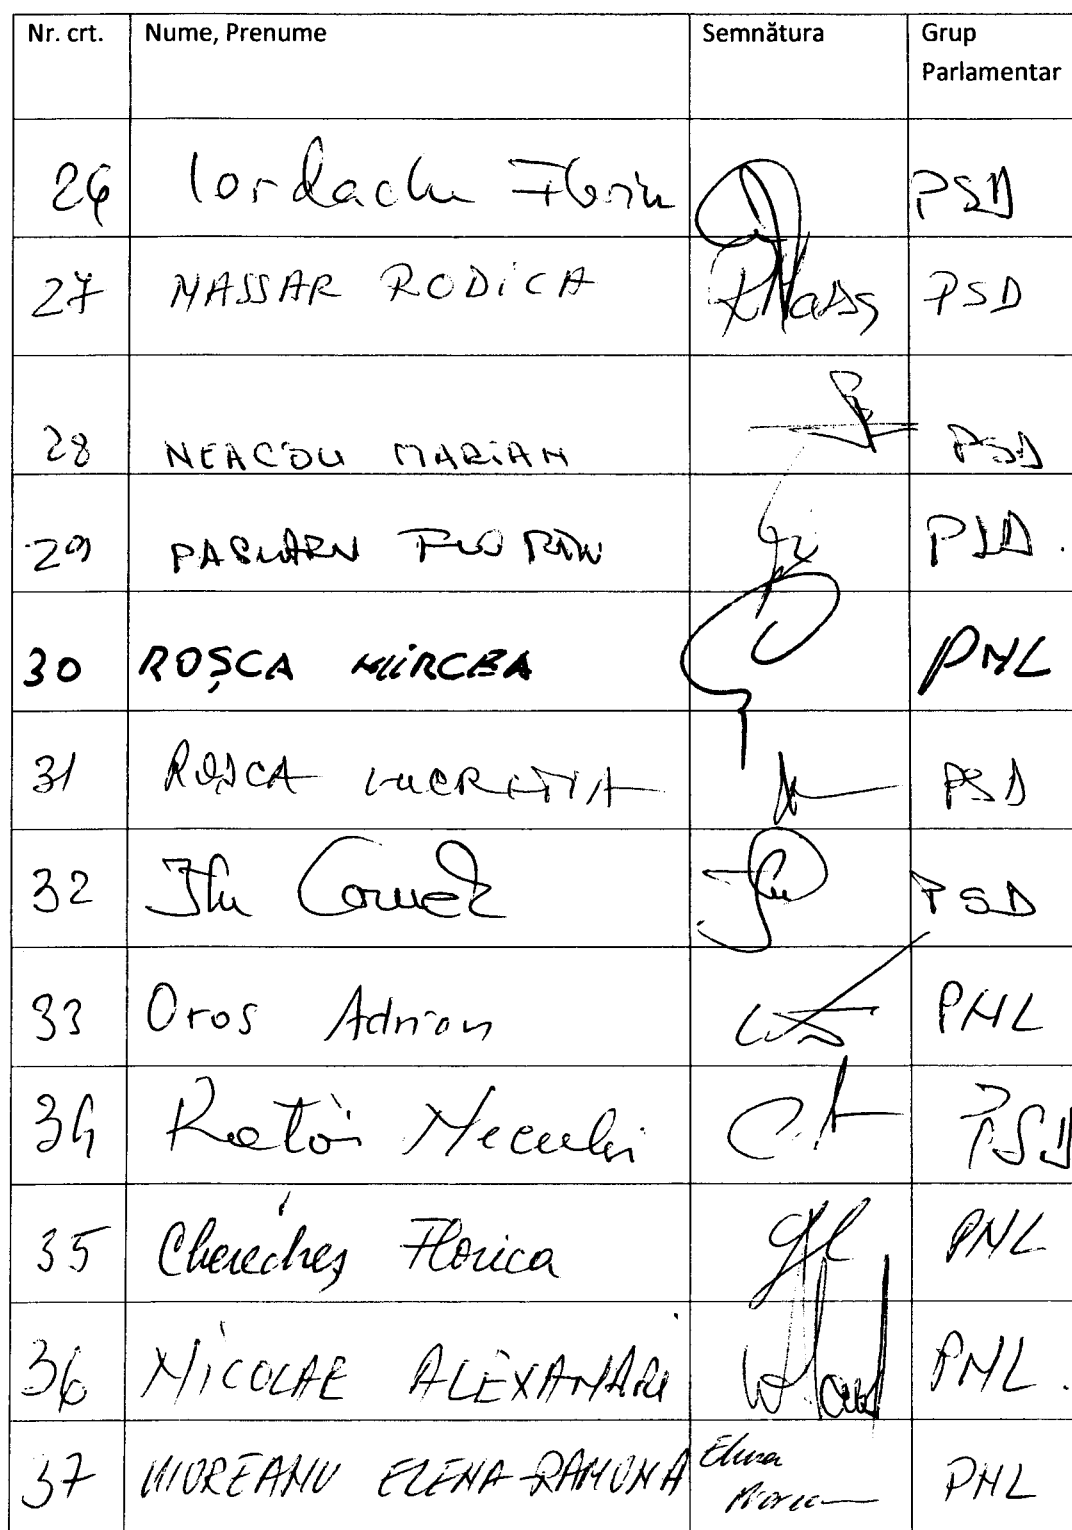 Nr. crt. Nume, Prenume Semnătura Grup
Parlamentar
26 Iordache Florin PSD
27 MASSAR RODICA RMass PSD
28 NEACȘU MARIAN PSD
29 PASLARU FLORIN PSD.
30 ROȘCA MIRCEA PNL
31 ROȘCA LUCREȚIA PSD
32 Itu Cornel PSD
33 Oros Adrian PNL
34 PSD
35 Cherecheș Florica PNL
36 NICOLAE ALEXANDRU PNL.
37 MOREANU ELENA-RAMONA Elena PNL